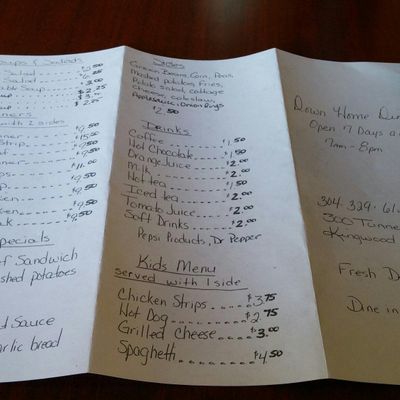 Soups & Salads
Salad $3.50
Salad $6.25
$3.00
able Soup $2.25
$3.--
$2.75
nners
with 2 sides
nner $9.50
Strip $15.00
$9.50
nner $9.50
$11.00
p $9.50
$9.50
ken $9.50
ken $9.50
ak $9.50
pecials
f Sandwich
shed potatoes
d Sauce
arlic bread
Sides
Green Beans, Corn, Peas,
Mashed potatoes, Fries,
Potato salad, cottage
cheese, coleslaw,
Applesauce, Onion Rings
$2.50
Drinks
Coffee $1.50
Hot Chocolate $1.50
Orange Juice $2.00
Milk $2.00
Hot tea $1.50
Iced tea $2.00
Tomato Juice $2.00
Soft Drinks $2.00
Pepsi Products, Dr Pepper
Kids Menu
served with 1 side
Chicken Strips $3.75
Hot Dog $2.75
Grilled Cheese $3.00
Spaghetti $4.50
Down Home Din
Open 7 Days a
7am - 8pm
304-329-61
300 Tunne
Kingwood
Fresh D
Dine in